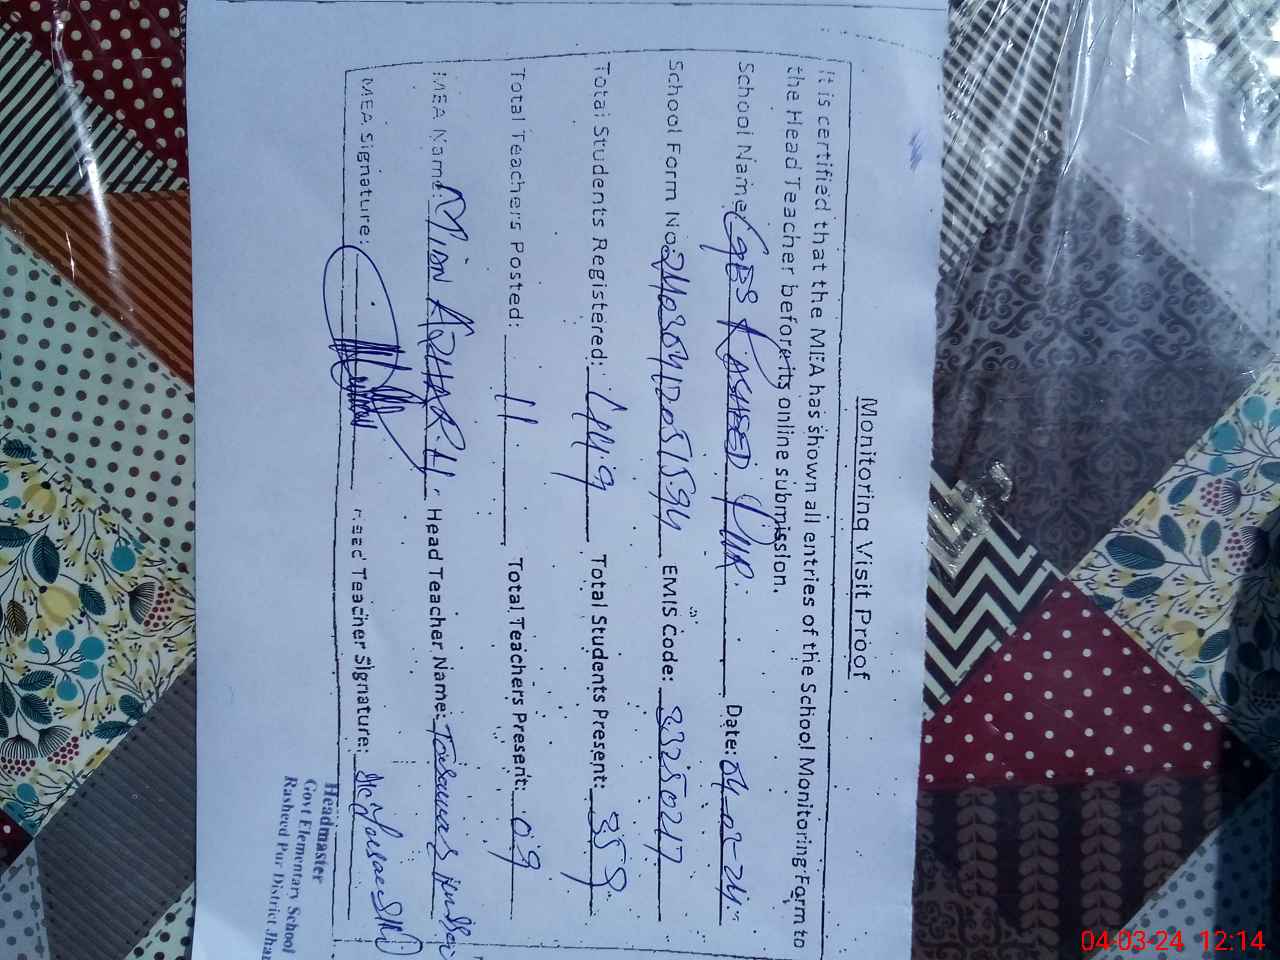 Monitoring Visit Proof
It is certified that the MEA has shown all entries of the School Monitoring Form to
the Head Teacher before its online submission.
School Name: GES RASHEED PUR. Date: 04-03-24
School Form No: EMIS code: 33250217
Total Students Registered: 449 Total Students Present: 359
Total Teachers Posted: 11 Total Teachers Present: 09
MEA Name: MIAN AZHAR.H. Head Teacher Name:
MEA Signature: Head Teacher Signature:
Headmaster
Govt Elementary School
Rasheed Pur District Jhan
04-03-24 12:14